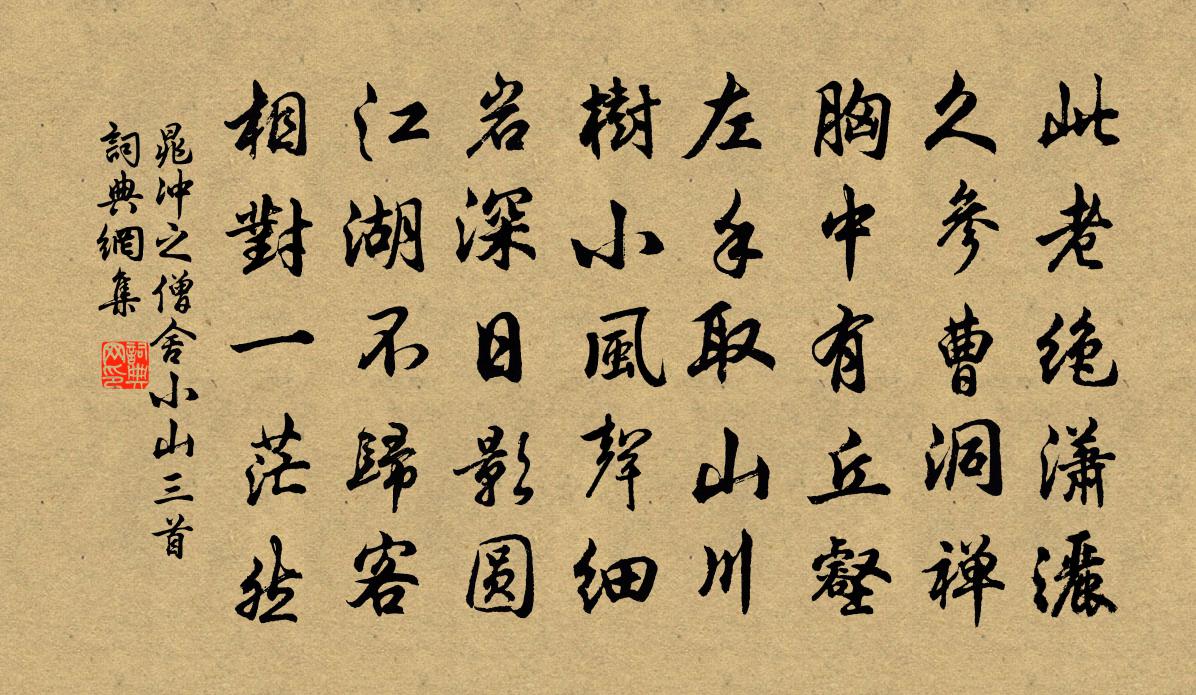 此老绝潇灑
久參曹洞禅
胸中有丘壑
左手取山川
樹小風聲细
岩深日影圆
江湖不歸客
相對一茫然
晁冲之僧舍小山三首
詞典網集
詞典网印